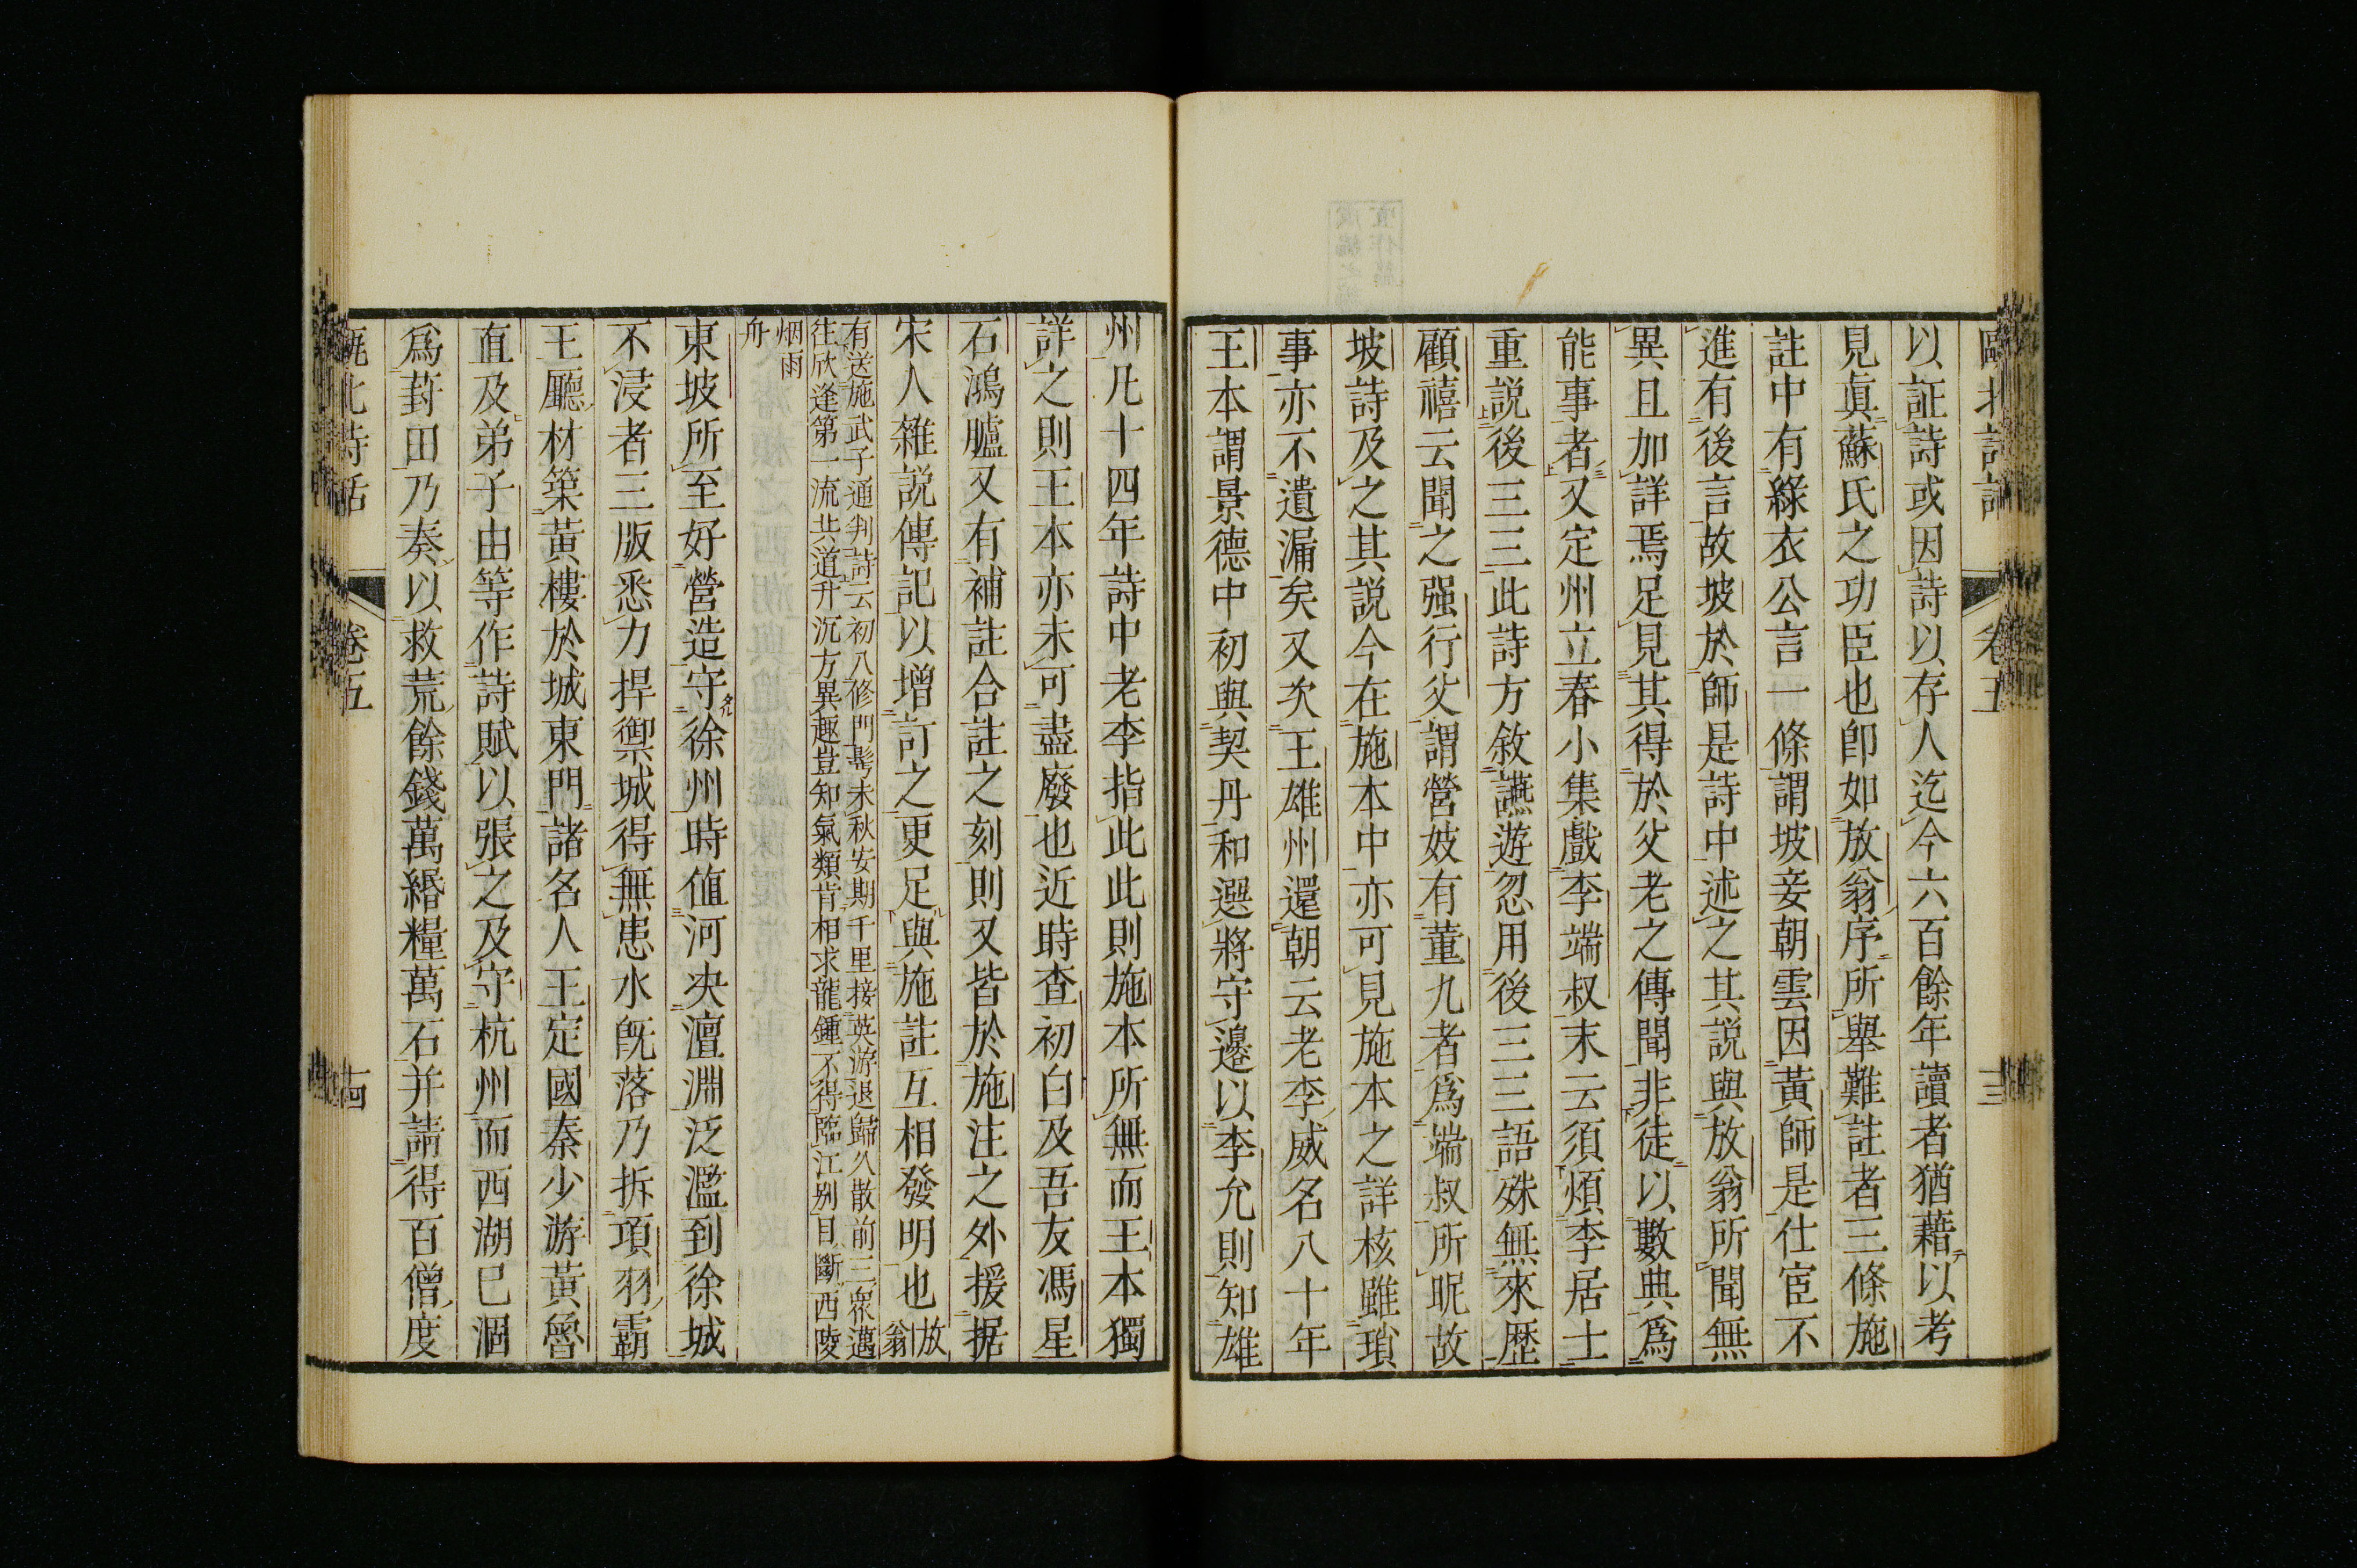 以証詩或因詩以存人迄今六百餘年讀者猶藉以考
見眞蘇氏之功臣也卽如放翁序所舉難註者三條施
註中有綠衣公言一條謂坡妾朝雲因黃師是仕宦不
進有後言故坡於師是詩中述之其説與放翁所聞無
異且加詳焉足見其得於父老之傳聞非徒以數典爲
能事者又定州立春小集戲李端叔末云須煩李居士
重説後三三此詩方敘讌遊忽用後三三語殊無來歴
顧禧云聞之强行父謂營妓有董九者爲端叔所昵故
坡詩及之其説今在施本中亦可見施本之詳核雖瑣
事亦不遺漏矣又次王雄州還朝云老李威名八十年
王本謂景德中初與契丹和選將守邊以李允則知雄
州凡十四年詩中老李指此此則施本所無而王本獨
詳之則王本亦未可盡廢也近時查初白及吾友馮星
石鴻臚又有補註合註之刻則又皆於施注之外援据
宋人雜説傳記以增訂之更足與施註互相發明也放翁
有送施武子通判詩云初八修門髩未秋安期千里接英游退歸久散前三衆邁
往欣逢第一流共道升沉方異趣豈知氣類肯相求龍鍾不得臨江别目斷西陵
烟雨
舟
東坡所至好營造守徐州時値河决澶淵泛濫到徐城
不浸者三版悉力捍禦城得無患水旣落乃拆項羽霸
王廳材築黃樓於城東門諸名人王定國秦少游黃魯
直及弟子由等作詩賦以張之及守杭州而西湖已涸
爲葑田乃奏以救荒餘錢萬緡糧萬石并請得百僧度
甌北詩話
卷五
十四